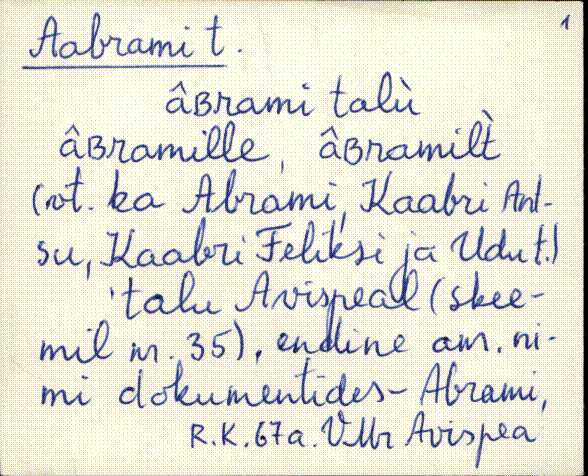 1
Aabrami t.
âBrami talù
âBramille, âBramilt̀
(vt. ka Abrami, Kaabri Ant-
su, Kaabri Feliksi ja Udu t.)
'talu Avispeal (skee-
mil nr. 35), endine am. ni-
mi dokumentides - Abrami,
R.K. 67a. VMr Avispea